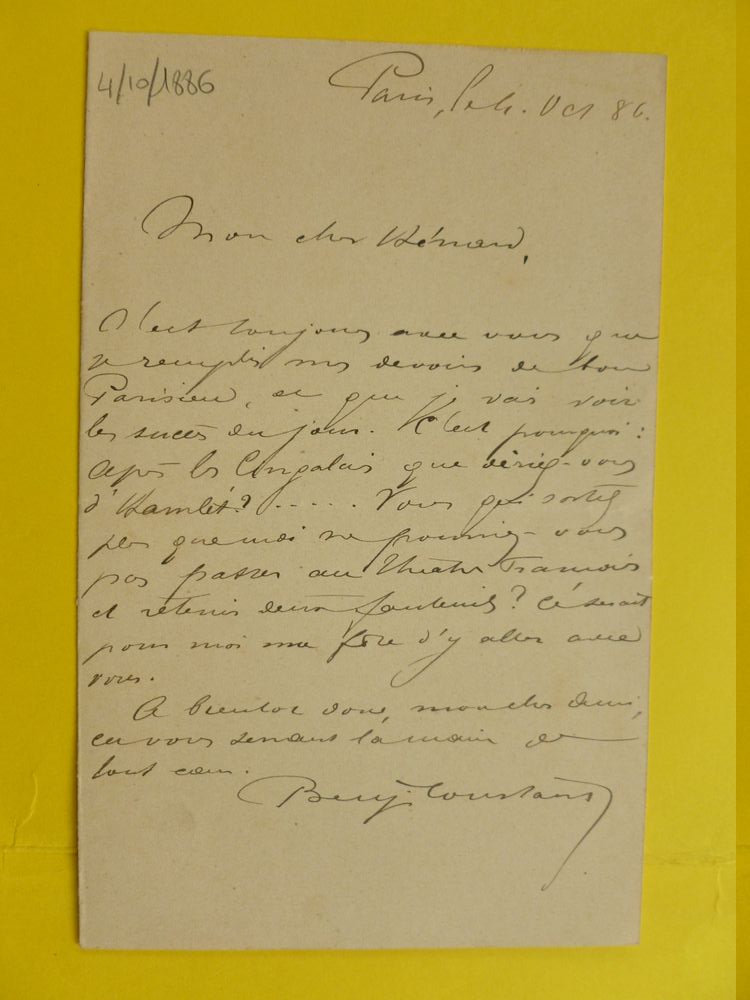 4/10/1886
Paris, le 4. Oct 86.
Mon cher Hénard,
C'est toujours avec vous que
je remplis mes devoirs de bon
Parisien, et que je vais voir
les succès du jour. C'est pourquoi :
après les Cingalais que diriez-vous
d'Hamlet? ..... Vous qui sortez
plus que moi ne pourriez-vous
pas passer au Théatre Francais
et retenir deux fauteuils? Ce serait
pour moi une fête d'y aller avec
vous.
A bientot donc, mon cher ami,
en vous serrant la main de
tout coeur.
Benj. Constant